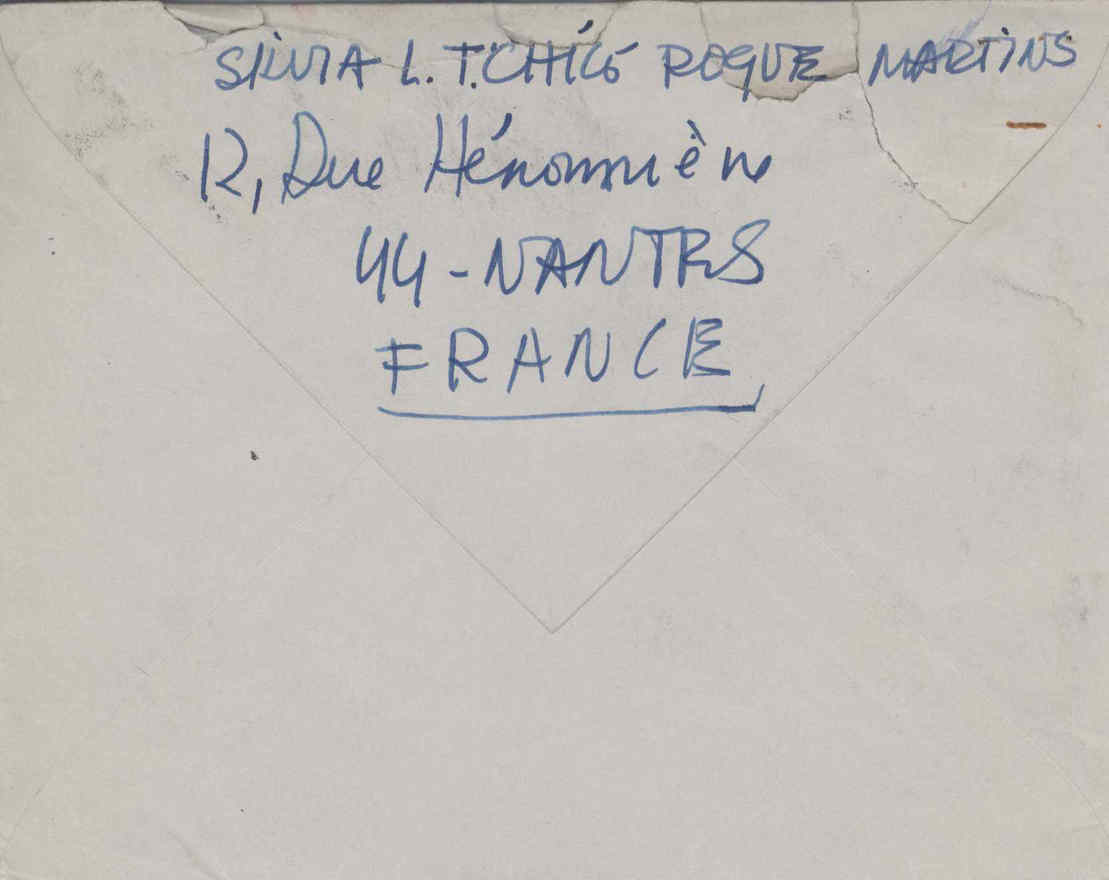 SILVIA L. T. CHÍCÓ ROQUE MARTINS
12, Rue Hénonnière
44 - NANTES
FRANCE